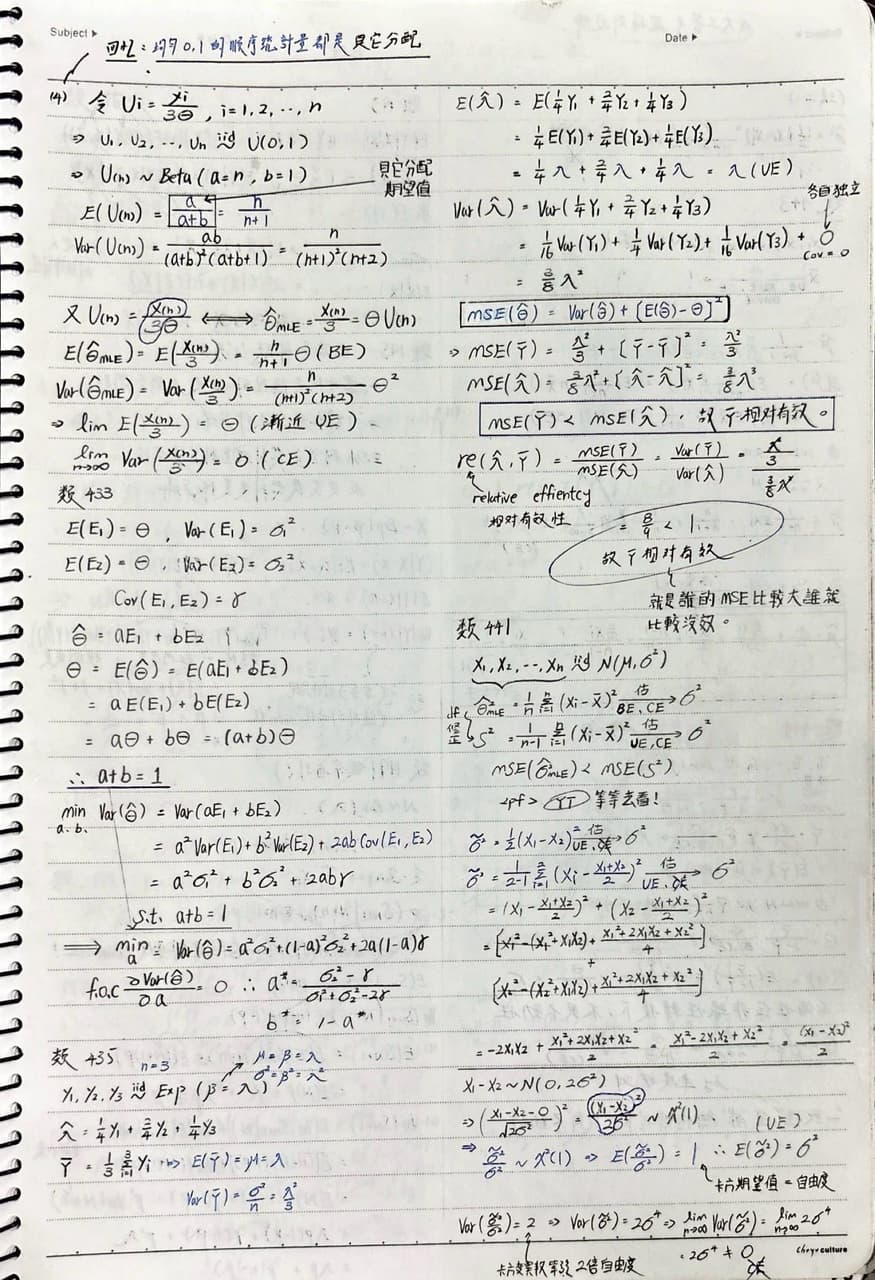 Subject ▸
Date ▸
回憶：均匀0,1的順序統計量都是貝它分配
(4) 令 Ui = Xi/3θ , i=1,2,...,n
⇒ U1, U2, ..., Un iid~ U(0,1)
⇒ U(n) ~ Beta(a=n, b=1)
貝它分配
期望值
E(U(n)) = a/(a+b) = n/(n+1)
Var(U(n)) = ab/((a+b)²(a+b+1)) = n/((n+1)²(n+2))
又 U(n) = X(n)/3θ ⟺ θ̂MLE = X(n)/3 = θU(n)
E(θ̂MLE) = E(X(n)/3) = n/(n+1) θ (BE)
Var(θ̂MLE) = Var(X(n)/3) = n/((n+1)²(n+2)) θ²
⇒ lim E(X(n)/3) = θ (漸近UE)
lim n→∞ Var(X(n)/3) = 0 (CE)
類433
E(E1) = θ , Var(E1) = σ1²
E(E2) = θ , Var(E2) = σ2²
Cov(E1,E2) = γ
θ̂ = aE1 + bE2
θ = E(θ̂) = E(aE1 + bE2)
= aE(E1) + bE(E2)
= aθ + bθ = (a+b)θ
∴ a+b = 1
min a.b. Var(θ̂) = Var(aE1 + bE2)
= a²Var(E1) + b²Var(E2) + 2abCov(E1,E2)
= a²σ1² + b²σ2² + 2abγ
s.t. a+b=1
⟹ min a = Var(θ̂) = a²σ1² + (1-a)²σ2² + 2a(1-a)γ
f.o.c ∂Var(θ̂)/∂a = 0 ∴ a* = (σ2² - γ)/(σ1² + σ2² - 2γ)
b* = 1 - a*
類435
n=3
μ = β = λ
σ² = β² = λ²
Y1, Y2, Y3 iid~ Exp(β = λ)
λ̂ = 1/4 Y1 + 2/4 Y2 + 1/4 Y3
Ȳ = 1/3 3Σi=1 Yi ⇒ E(Ȳ) = μ = λ
Var(Ȳ) = σ²/n = λ²/3
E(λ̂) = E(1/4 Y1 + 2/4 Y2 + 1/4 Y3)
= 1/4 E(Y1) + 2/4 E(Y2) + 1/4 E(Y3)
= 1/4 λ + 2/4 λ + 1/4 λ = λ (UE)
各自獨立
Var(λ̂) = Var(1/4 Y1 + 2/4 Y2 + 1/4 Y3)
= 1/16 Var(Y1) + 1/4 Var(Y2) + 1/16 Var(Y3) + 0
cov = 0
= 3/8 λ²
MSE(θ̂) = Var(θ̂) + [E(θ̂) - θ]²
⇒ MSE(Ȳ) = λ²/3 + [Ȳ - Ȳ]² = λ²/3
MSE(λ̂) = 3/8 λ² + [λ̂ - λ̂]² = 3/8 λ²
MSE(Ȳ) < MSE(λ̂), 故Ȳ相對有效。
re(λ̂, Ȳ) = MSE(Ȳ)/MSE(λ̂) = Var(Ȳ)/Var(λ̂) = (λ²/3)/(3/8 λ²)
relative effientcy
相對有效性
= 8/9 < 1
故Ȳ相對有效
就是誰的MSE比較大誰就
比較沒效。
類441
X1, X2, ..., Xn iid~ N(μ, σ²)
df 修正
θ̂²MLE = 1/n nΣi=1 (Xi - X̄)² 估 BE,CE → σ²
S² = 1/(n-1) nΣi=1 (Xi - X̄)² 估 UE,CE → σ²
MSE(θ̂²MLE) < MSE(S²)
<pf> YT 等等去看!
σ̃² = 1/2 (X1 - X2)² 估 UE,CE → σ²
σ̃² = 1/(2-1) 2Σi=1 (Xi - (X1+X2)/2)² 估 UE,CE → σ²
= (X1 - (X1+X2)/2)² + (X2 - (X1+X2)/2)²
= [X1² - (X1² + X1X2) + (X1² + 2X1X2 + X2²)/4]
+
[X2² - (X2² + X1X2) + (X1² + 2X1X2 + X2²)/4]
= -2X1X2 + (X1² + 2X1X2 + X2²)/2 = (X1² - 2X1X2 + X2²)/2 = (X1 - X2)²/2
X1 - X2 ~ N(0, 2σ²)
⇒ ((X1 - X2 - 0)/√2σ²)² = (X1 - X2)²/2σ² ~ χ²(1)
(UE)
⇒ σ̃²/σ² ~ χ²(1) ⇒ E(σ̃²/σ²) = 1 ∴ E(σ̃²) = σ²
卡方期望值 = 自由度
Var(σ̃²/σ²) = 2 ⇒ Var(σ̃²) = 2σ⁴ ⇒ lim n→∞ Var(σ̃²) = lim n→∞ 2σ⁴
= 2σ⁴ ≠ 0
CE
卡方變異數等於2倍自由度
Chryx culture